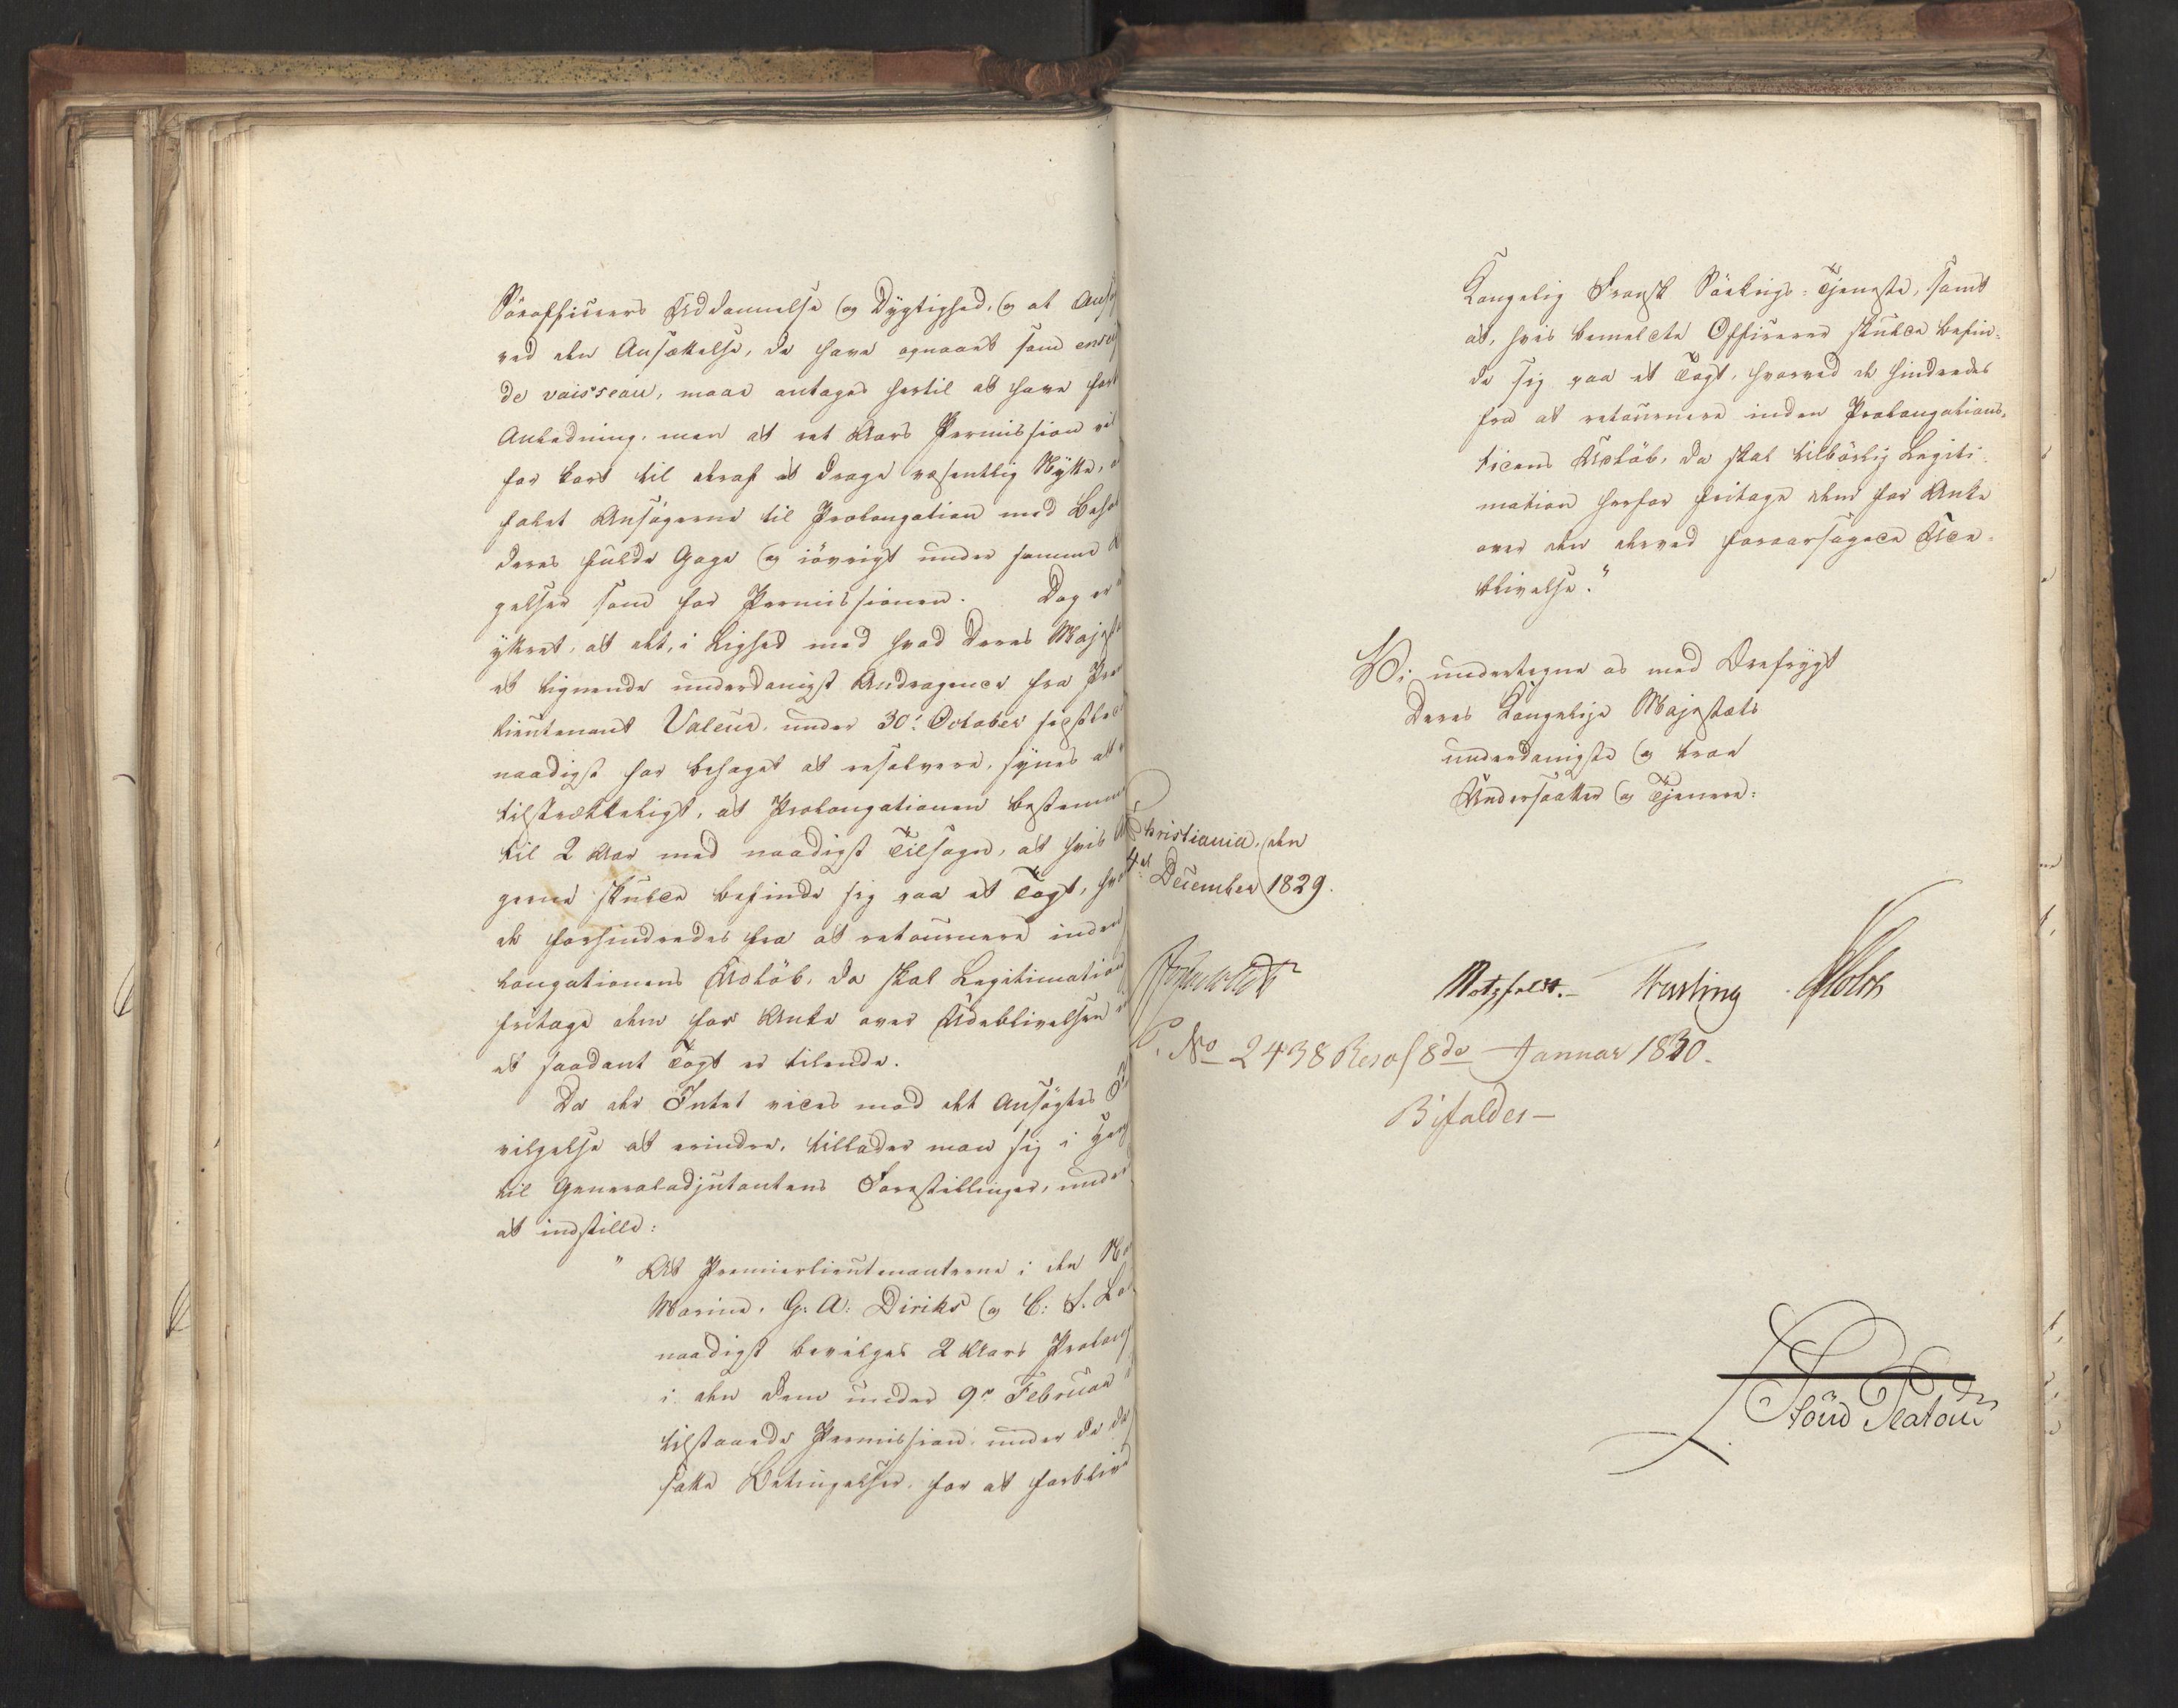 Söeofficeers Uddannelse og Dygtighed, og at
ved den Ansættelse, de have opnaaet som
de vaisseau, maae antages hertil at have
Anledning, men at eet Aars Permission
for kort til deraf at drage væsentlig Nytte,
falet Ansøgerne til Prolongation med
deres fulde Gage og iövrigt under samme
gelser som for Permissionen. Dog er
yttret, at det, i Lighed med hvad Deres
et lignende underdanigst Andragende fra
lieutenant Valeur, under 30: October
naadigst har behaget at resolvere, synes at
tilstrækkeligt, at Prolongationen
til 2 Aar med naadigst Tilsagn, at hvis
gerne skulde befinde sig paa et Togt,
de forhindredes fra at retournere
longationens Udlöb, da skal
fritage dem for Anke over Udeblivelsen
et saadant Togt er tilende.
Da der Intet vides mod det Ansøgtes
vilgelse at erindre, tillader man sig i
til Generaladjutantens Forestillinger,
at indstille:
" At Premierlieutenanterne i den
Marine, G: A: Diriks og C: F.
naadigst bevilges 2 Aars
i den dem under 9de Februar
tilstaaede Permission, under de
satte Betingelser, for at
Kongelig Fransk Söekrigs-Tjeneste, samt
at, hvis bemeldte Officerer skulde befin-
de sig paa et Togt, hvorved de hindredes
fra at retournere inden Prolongations-
tidens Udlöb, da skal tilbörlig Legiti-
mation herfor fritage dem for Anke
over den derved foraarsagede Ude-
blivelse."
Vi undertegne os med Ærefrygt
Deres Kongelige Majestæts
underdanigste og troe
Undersaatter og Tjenere:
Christiania, den
4de December 1829.
Motzfeldt. Fasting Holst
No 2438 Resol 8de Januar 1830.
Bifaldes